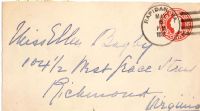 RAPIDAN, VA.
MAY
P.M.
Miss Ellen Bagby
104½ West Grace Street
Richmond
Virginia